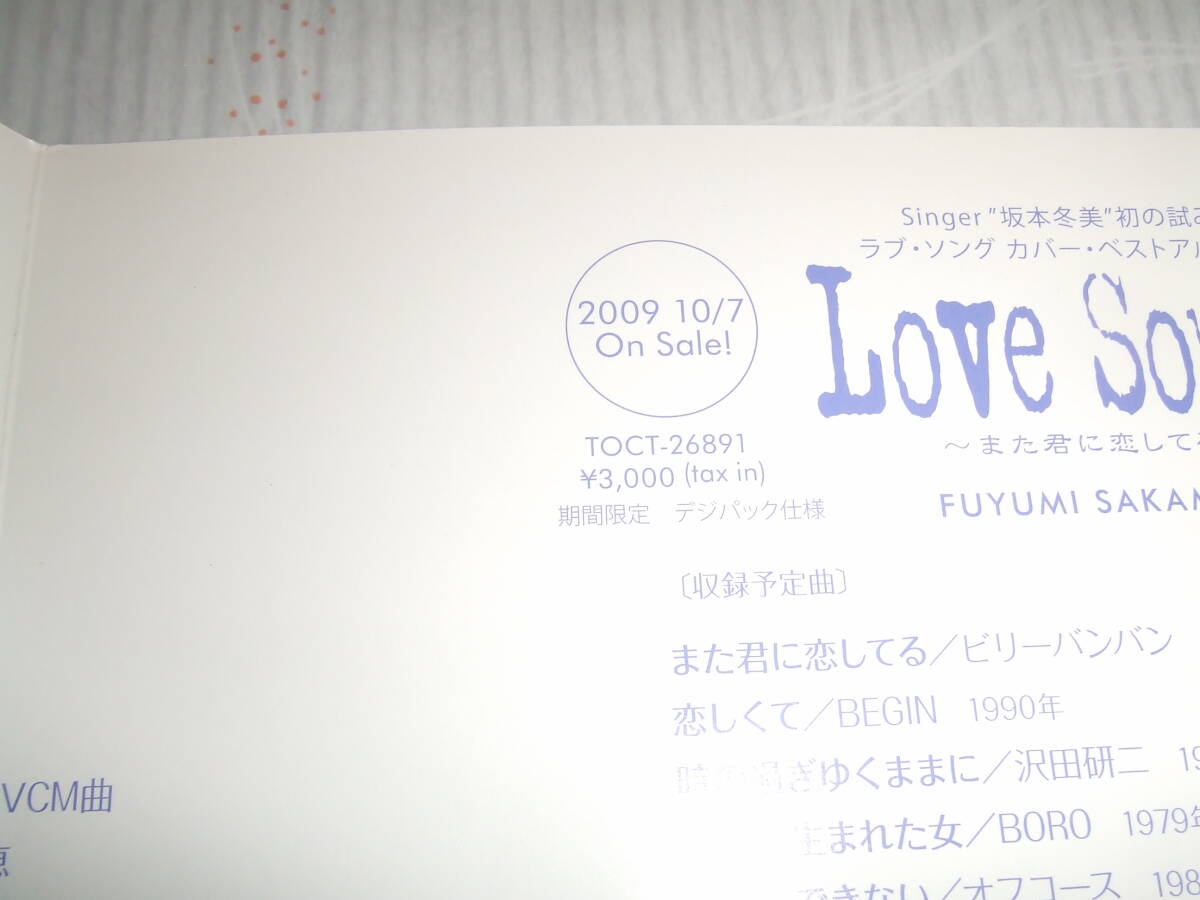 Singer "坂本冬美"初の試み
ラブ・ソング カバー・ベストアル
Love So
～また君に恋してる
FUYUMI SAKAM
2009 10/7
On Sale!
TOCT-26891
¥3,000 (tax in)
期間限定 デジパック仕様
〔収録予定曲〕
また君に恋してる／ビリーバンバン
恋しくて／BEGIN 1990年
時の過ぎゆくままに／沢田研二 19
生まれた女／BORO 1979年
できない／オフコース 198
VCM曲